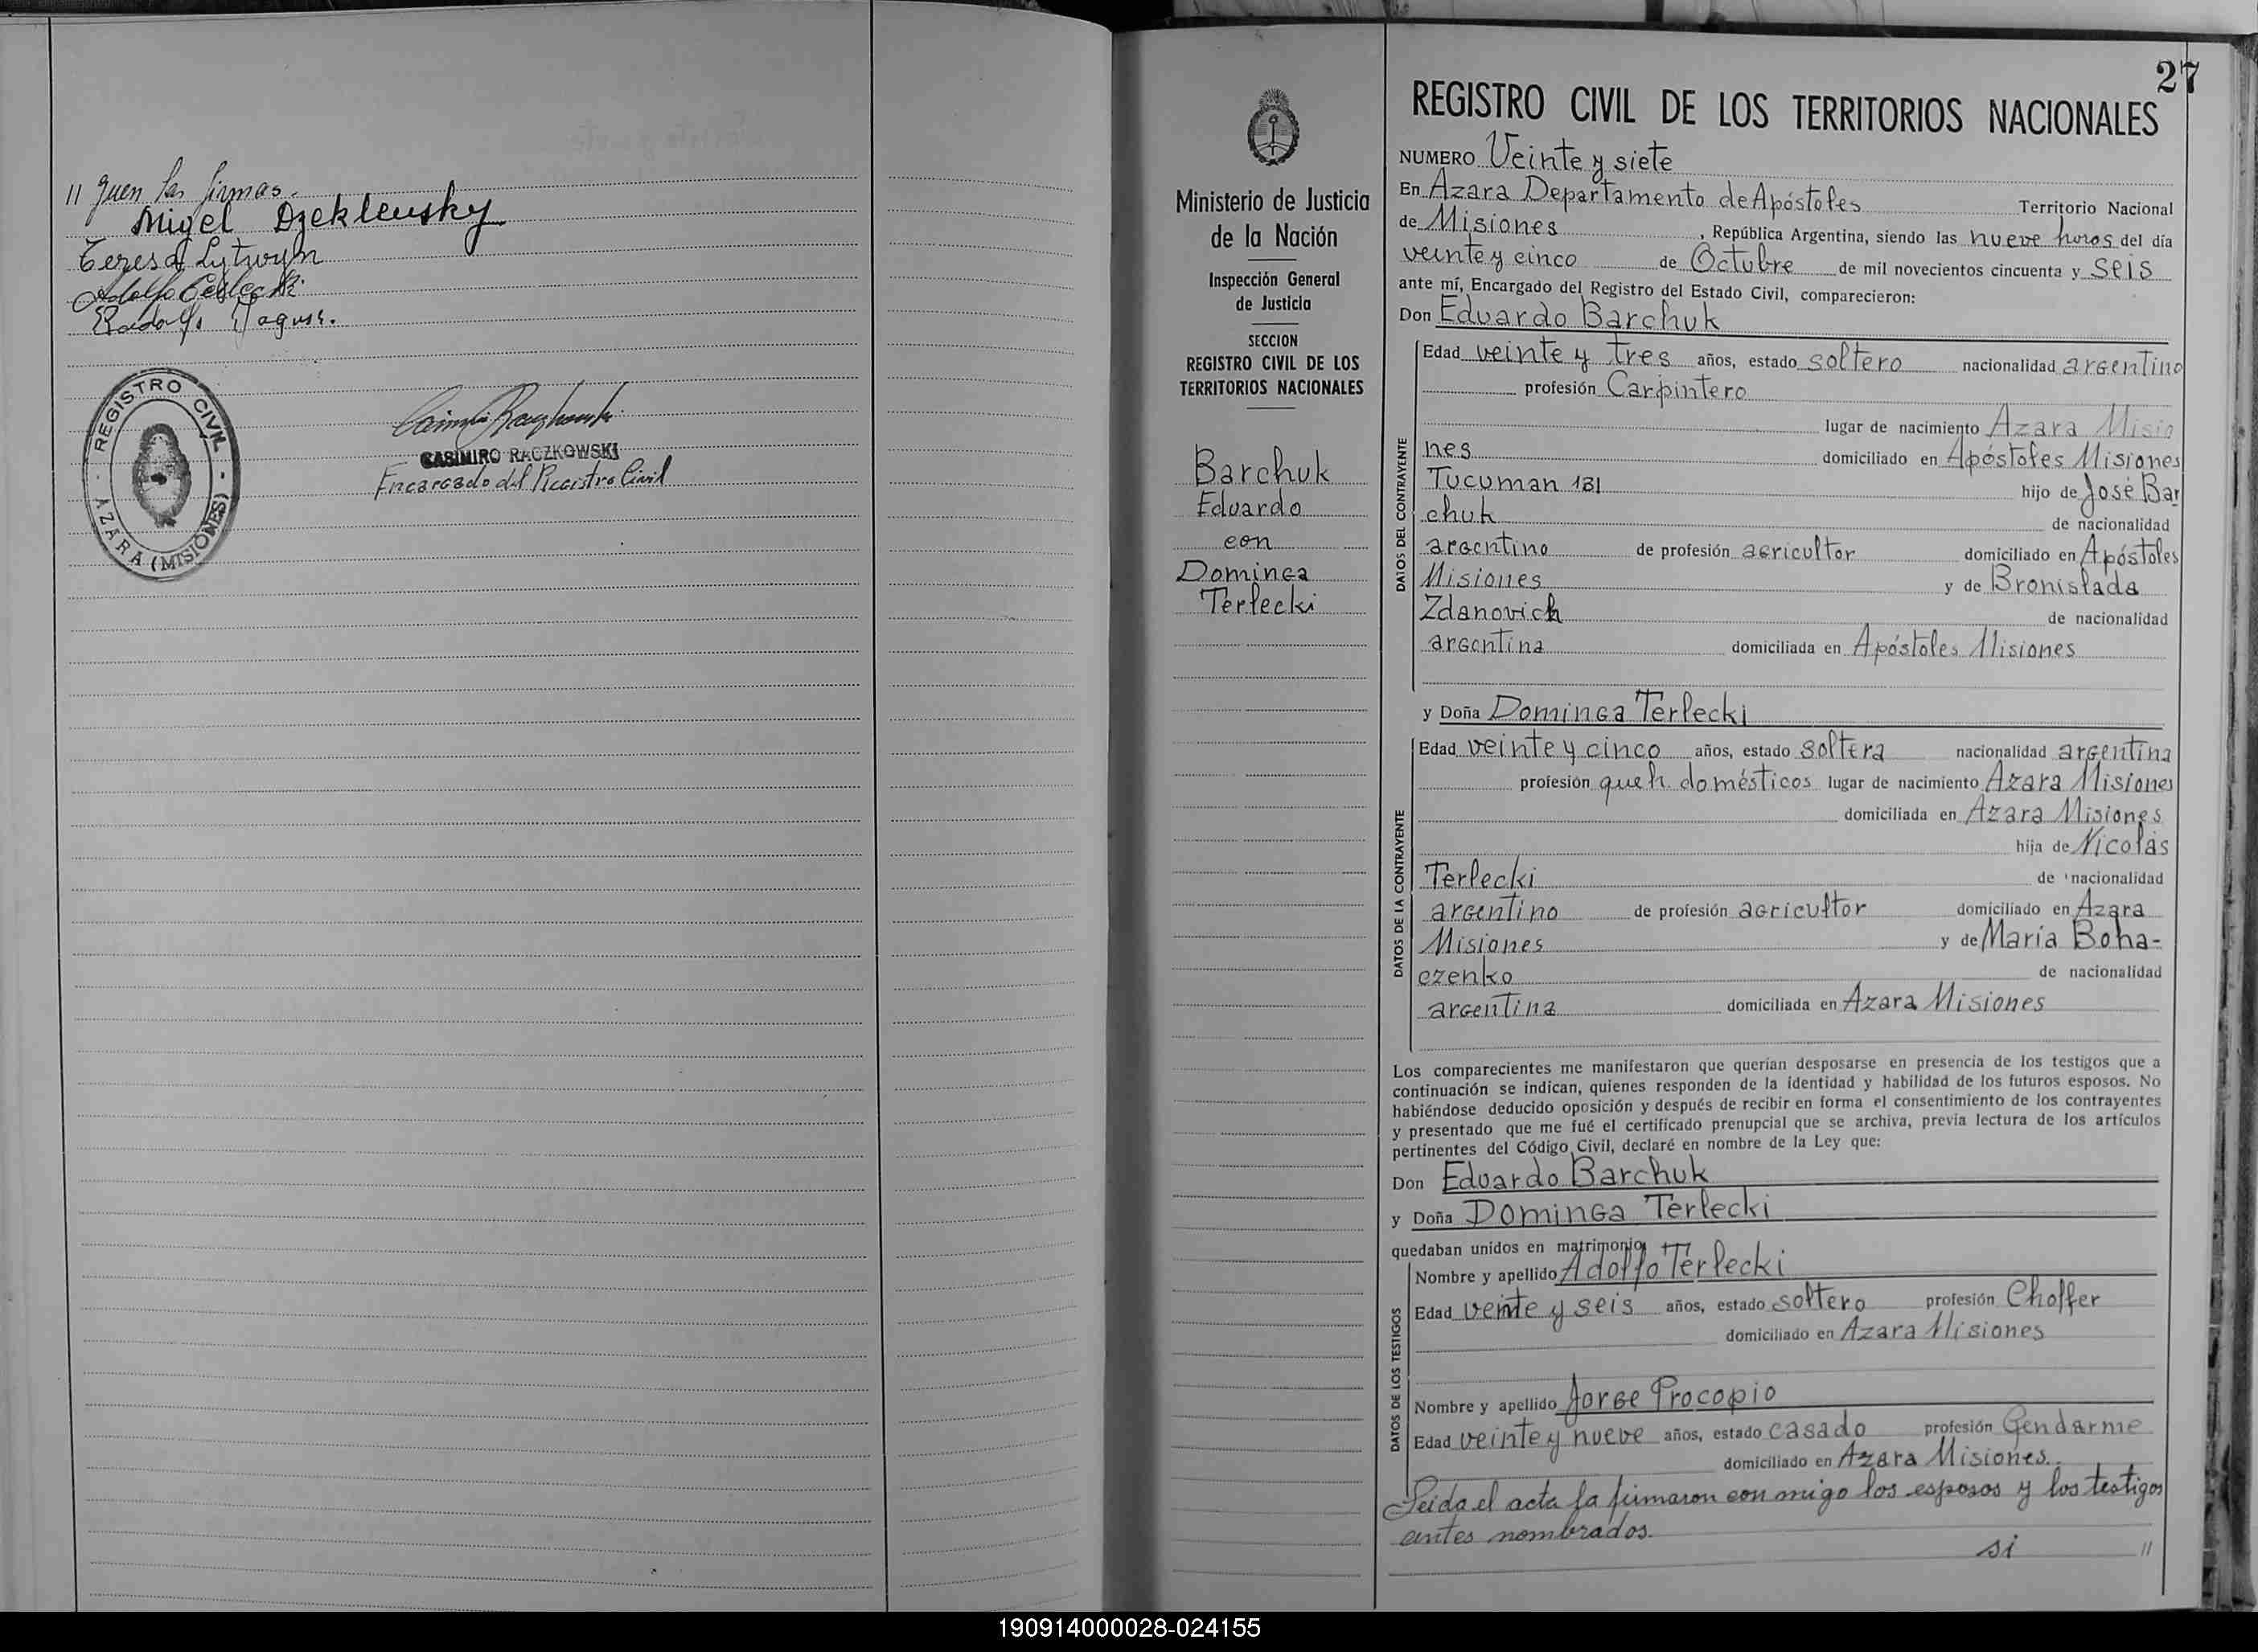 // guen las firmas.
Migel Dzeklewsky
Teresa Lytwyn
Adolfo Terlecki
REGISTRO CIVIL
AZARA (MISIONES)
CASIMIRO RACZKOWSKI
Encargado del Registro Civil
Ministerio de Justicia
de la Nación
Inspección General
de Justicia
SECCION
REGISTRO CIVIL DE LOS
TERRITORIOS NACIONALES
Barchuk
Eduardo
con
Dominga
Terlecki
27
REGISTRO CIVIL DE LOS TERRITORIOS NACIONALES
NUMERO Veinte y siete
En Azara Departamento de Apóstoles Territorio Nacional
de Misiones, República Argentina, siendo las nueve horas del día
veinte y cinco de Octubre de mil novecientos cincuenta y seis
ante mí, Encargado del Registro del Estado Civil, comparecieron:
Don Eduardo Barchuk
DATOS DEL CONTRAYENTE
Edad veinte y tres años, estado soltero nacionalidad argentino
profesión Carpintero
lugar de nacimiento Azara Misio
nes domiciliado en Apóstoles Misiones
Tucuman 131 hijo de José Bar
chuk de nacionalidad
argentino de profesión agricultor domiciliado en Apóstoles
Misiones y de Bronislada
Zdanovich de nacionalidad
argentina domiciliada en Apóstoles Misiones
y Doña Dominga Terlecki
DATOS DE LA CONTRAYENTE
Edad veinte y cinco años, estado soltera nacionalidad argentina
profesión queh. domésticos lugar de nacimiento Azara Misiones
domiciliada en Azara Misiones
hija de Nicolás
Terlecki de nacionalidad
argentino de profesión agricultor domiciliado en Azara
Misiones y de María Boha-
czenko de nacionalidad
argentina domiciliada en Azara Misiones
Los comparecientes me manifestaron que querían desposarse en presencia de los testigos que a
continuación se indican, quienes responden de la identidad y habilidad de los futuros esposos. No
habiéndose deducido oposición y después de recibir en forma el consentimiento de los contrayentes
y presentado que me fué el certificado prenupcial que se archiva, previa lectura de los artículos
pertinentes del Código Civil, declaré en nombre de la Ley que:
Don Eduardo Barchuk
y Doña Dominga Terlecki
quedaban unidos en matrimonio
DATOS DE LOS TESTIGOS
Nombre y apellido Adolfo Terlecki
Edad veinte y seis años, estado soltero profesión Choffer
domiciliado en Azara Misiones
Nombre y apellido Jorge Procopio
Edad veinte y nueve años, estado casado profesión Gendarme
domiciliado en Azara Misiones.
Leida el acta la firmaron con migo los esposos y los testigos
antes nombrados.
si //
190914000028-024155